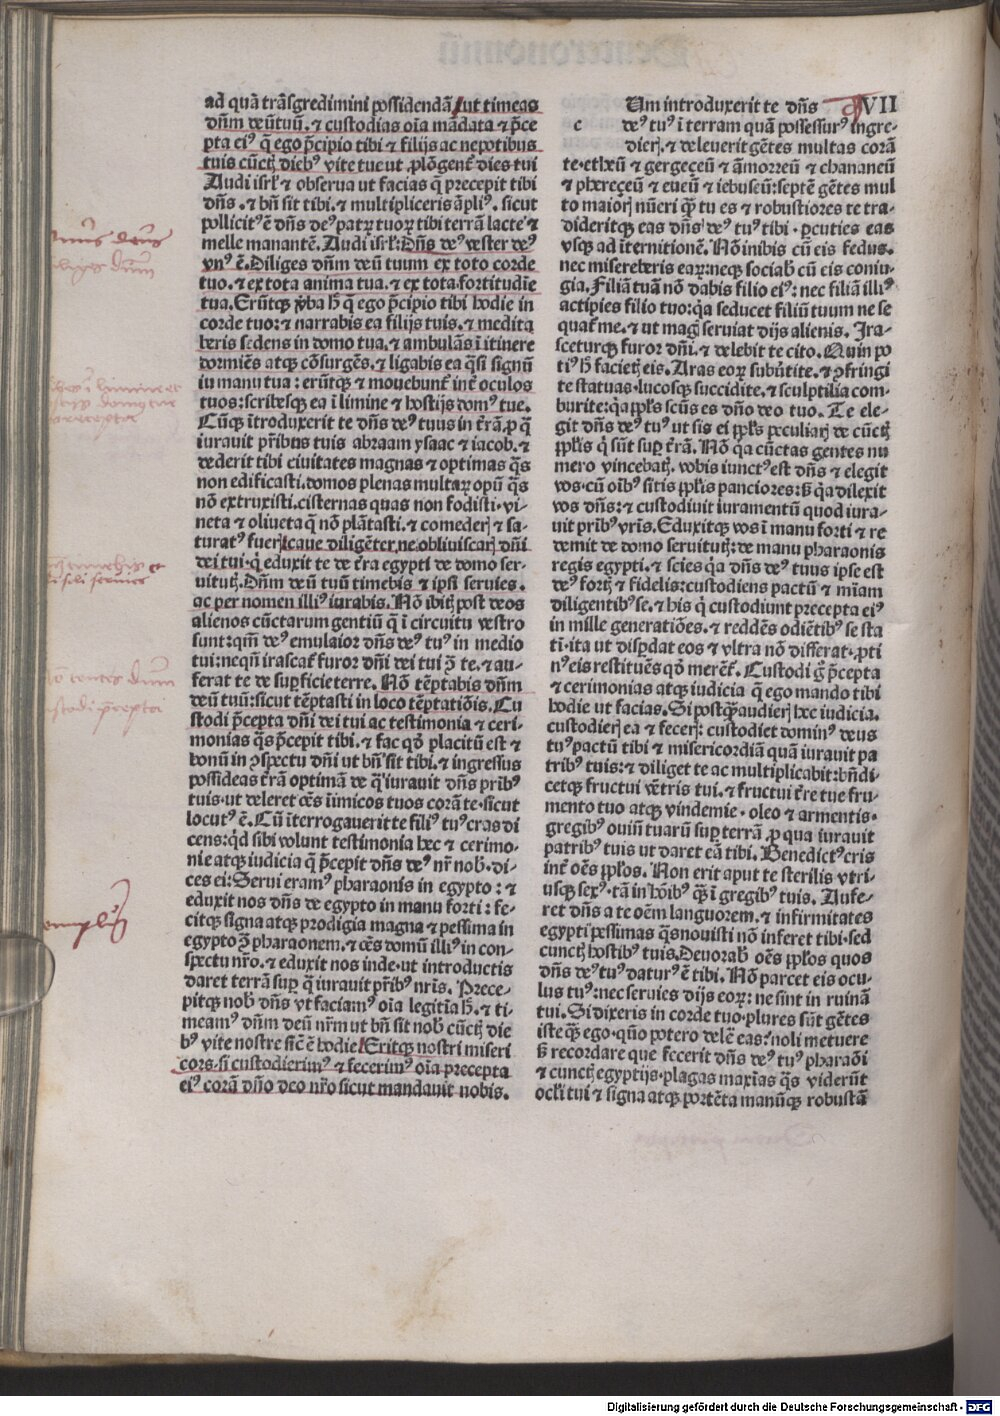 ad quā trāſgredimini poſſidendā ut timeas
dn̄m deū tuū. ⁊ cuſtodias oīa mādata ⁊ p̄ce
pta eiꝰ q̄ ego p̄cipio tibi ⁊ filijs ac nepotibus
tuis cūctꝭ diebꝰ vite tue ut ꝓlōgent̄ dies tui
Audi iſrl̄ ⁊ obſerua ut facias q̄ precepit tibi
dn̄s . ⁊ bn̄ ſit tibi. ⁊ multipliceris āpliꝰ. ſicut
pollicitꝰ ē dn̄s deꝰ patꝝ tuoꝝ tibi terrā lacte ⁊
melle manantē. Audi iſrl̄. Dn̄s deꝰ veſter deꝰ
vnꝰ ē. Diliges dn̄m deū tuum ex toto corde
tuo. ⁊ ex tota anima tua. ⁊ ex tota fortitudīe
tua. Erūtqꝫ v̄ba h̄ q̄ ego p̄cipio tibi hodie in
corde tuo: ⁊ narrabis ea filijs tuis. ⁊ medita
beris ſedens in domo tua. ⁊ ambulās ī itinere
dormiēs atqꝫ cōſurgēs. ⁊ ligabis ea q̄ſi ſignū
iu manu tua : erūtqꝫ ⁊ mouebunt̄ int̄ oculos
tuos: ſcribeſqꝫ ea ī limine ⁊ hoſtijs domꝰ tue.
Cūqꝫ ītroduxerit te dn̄s deꝰ tuus in t̄rā ꝓ q̄
iurauit pr̄ibus tuis abraam yſaac ⁊ iacob. ⁊
dederit tibi ciuitates magnas ⁊ optimas q̄s
non edificaſti. domos plenas multaꝝ opū q̄s
nō extruxiſti. ciſternas quas non fodiſti. vi-
neta ⁊ oliueta q̄ nō plātaſti. ⁊ comederꝭ ⁊ ſa-
turatꝰ fuerꝭ caue diligēter ne obliuiſcarꝭ dn̄i
dei tui. q̄ eduxit te de t̄ra egypti de domo ſer-
uitutꝭ. Dn̄m deū tuū timebis ⁊ ipſi ſeruies.
ac per nomen illiꝰ iurabis. Nō ibitꝭ poſt deos
alienos cūctarum gentiū q̄ ī circuitu veſtro
ſunt: qm̄ deꝰ emulaior dn̄s deꝰ tuꝰ in medio
tui: neqū iraſcat̄ furor dn̄i dei tui ꝯ̄ te. ⁊ au-
ferat te de ſuꝑficie terre. Nō tēptabis dn̄m
deū tuū: ſicut tēptaſti in loco tēptatiōis. Cu
ſtodi p̄cepta dn̄i dei tui ac teſtimonia ⁊ ceri-
monias q̄s p̄cepit tibi. ⁊ fac qd̄ placitū eſt ⁊
bonū in ꝯſpectu dn̄i ut bn̄ ſit tibi. ⁊ ingreſſus
poſſideas t̄rā optimā de q̄ iurauit dn̄s pr̄ibꝰ
tuis. ut deleret oēs īimicos tuos corā te. ſicut
locutꝰ ē. Cū īterrogauerit te filiꝰ tuꝰ cras di
cens: qd̄ ſibi volunt teſtimonia hec ⁊ cerimo-
nie atqꝫ iudicia q̄ p̄cepit dn̄s deꝰ nr̄ nob̄. di-
ces ei: Serui eramꝰ pharaonis in egypto : ⁊
eduxit nos dn̄s de egypto in manu forti : fe-
citqꝫ ſigna atqꝫ prodigia magna ⁊ peſſima in
egypto ꝯ̄ pharaonem. ⁊ oēs domū illiꝰ in con-
ſpectu nr̄o. ⁊ eduxit nos inde. ut introductis
daret terrā ſuꝑ q̄ iurauit pr̄ibꝰ nr̄is. Prece-
pitqꝫ nob̄ dn̄s vt faciamꝰ oīa legitīa h̄. ⁊ ti-
meamꝰ dn̄m deū nr̄m ut bn̄ ſit nob̄ cūctꝭ die
bꝰ vite noſtre ſic̄ ē hodie. Eritqꝫ noſtri miſeri
cors. ſi cuſtodierimꝰ ⁊ fecerimꝰ oīa precepta
eiꝰ corā dn̄o deo nr̄o ſicut mandauit nobis.
Um introduxerit te dn̄s VII
c deꝰ tuꝰ ī terram quā poſſeſſurꝰ ingre-
dierꝭ. ⁊ deleuerit gētes multas corā
te. etheū ⁊ gergeçeū ⁊ āmorreū ⁊ chananeū
⁊ phereçeū ⁊ eueū ⁊ iebuſeū: ſeptē gētes mul
to maiorꝭ nūeri qꝫ̄ tu es ⁊ robuſtiores te tra-
dideritqꝫ eas dn̄s deꝰ tuꝰ tibi . ꝑcuties eas
vſqꝫ ad īternitionē. Nō inibis cū eis fedus.
nec miſereberis eaꝝ: neqꝫ ſociab̄ cū eis coniu-
gia. Filiā tuā nō dabis filio eiꝰ: nec filiā illiꝰ
actipies filio tuo: q̇a ſeducet filiū tuum ne ſe
quat̄ me. ⁊ ut magꝭ ſeruiat dijs alienis. Ira-
ſceturqꝫ furor dn̄i. ⁊ delebit te cito. Quin po
tiꝰ h̄ facietꝭ eis. Aras eoꝝ ſubūtite. ⁊ ꝯfringi
te ſtatuas. lucoſqꝫ ſuccidite. ⁊ ſculptilia com-
burite: q̇a ppl̄s ſcūs es dn̄o deo tuo. Te ele-
git dn̄s deꝰ tuꝰ ut ſis ei ppl̄s peculiarꝭ de cūctꝭ
ppl̄is q̄ ſūt ſuꝑ t̄rā. Nō q̇a cūctas gentes nu
mero vincebatꝭ. vobis iunctꝰ eſt dn̄s ⁊ elegit
vos. cū oībꝰ ſitis ppl̄is panciores: ſꝫ q̇a dilexit
vos dn̄s: ⁊ cuſtodiuit iuramentū quod iura-
uit pr̄ibꝰ vr̄is. Eduxitqꝫ vos ī manu forti ⁊ re
demit de domo ſeruitutꝭ: de manu pharaonis
regis egypti. ⁊ ſcies q̇a dn̄s deꝰ tuus ipſe eſt
deꝰ fortꝭ ⁊ fidelis: cuſtodiens pactū ⁊ mīam
diligentibꝰ ſe. ⁊ his q̇ cuſtodiunt precepta eiꝰ
in mille generatiōes. ⁊ reddēs odiētibꝰ ſe ſta
tī. ita ut diſꝑdat eos ⁊ vltra nō differat. ꝓti
nꝰ eis reſtituēs qd̄ merēt̄. Cuſtodi g̊ p̄cepta
⁊ cerimonias atqꝫ iudicia q̄ ego mando tibi
hodie ut facias. Si poſtqꝫ̄ audierꝭ hec iudicia.
cuſtodierꝭ ea ⁊ fecerꝭ: cuſtodiet dominꝰ deus
tuꝰ pactū tibi ⁊ miſericordiā quā iurauit pa
tribꝰ tuis: ⁊ diliget te ac multiplicabit: bn̄di-
cetqꝫ fructui vētris tui. ⁊ fructui t̄re tue fru-
mento tuo atqꝫ vindemie . oleo ⁊ armentis.
gregibꝰ ouiū tuarū ſuꝑ terrā ꝓ qua iurauit
patribꝰ tuis ut daret eā tibi. Benedictꝰ eris
int̄ oēs ppl̄os. Non erit aput te ſterilis vtri-
uſqꝫ ſexꝰ. tā in hōibꝰ qꝫ̄ ī gregibꝰ tuis. Aufe-
ret dn̄s a te oēm languorem. ⁊ infirmitates
egypti peſſimas q̄s nouiſti nō inferet tibi. ſed
cunctꝭ hoſtibꝰ tuis. Deuorab̄ oēs ppl̄os quos
dn̄s deꝰ tuꝰ daturꝰ ē tibi. Nō parcet eis ocu-
lus tuꝰ: nec ſeruies dijs eoꝝ: ne ſint in ruinā
tui. Si dixeris in corde tuo. plures ſūt gētes
iſte qꝫ̄ ego. quo potero delē eas? noli metuere
ſꝫ recordare que fecerit dn̄s deꝰ tuꝰ pharaōi
⁊ cunctꝭ egyptijs. plagas maxīas q̄s viderūt
ocl̄i tui ⁊ ſigna atqꝫ portēta manūqꝫ robuſtā
Digitalisierung gefördert durch die Deutsche Forschungsgemeinschaft - DFG